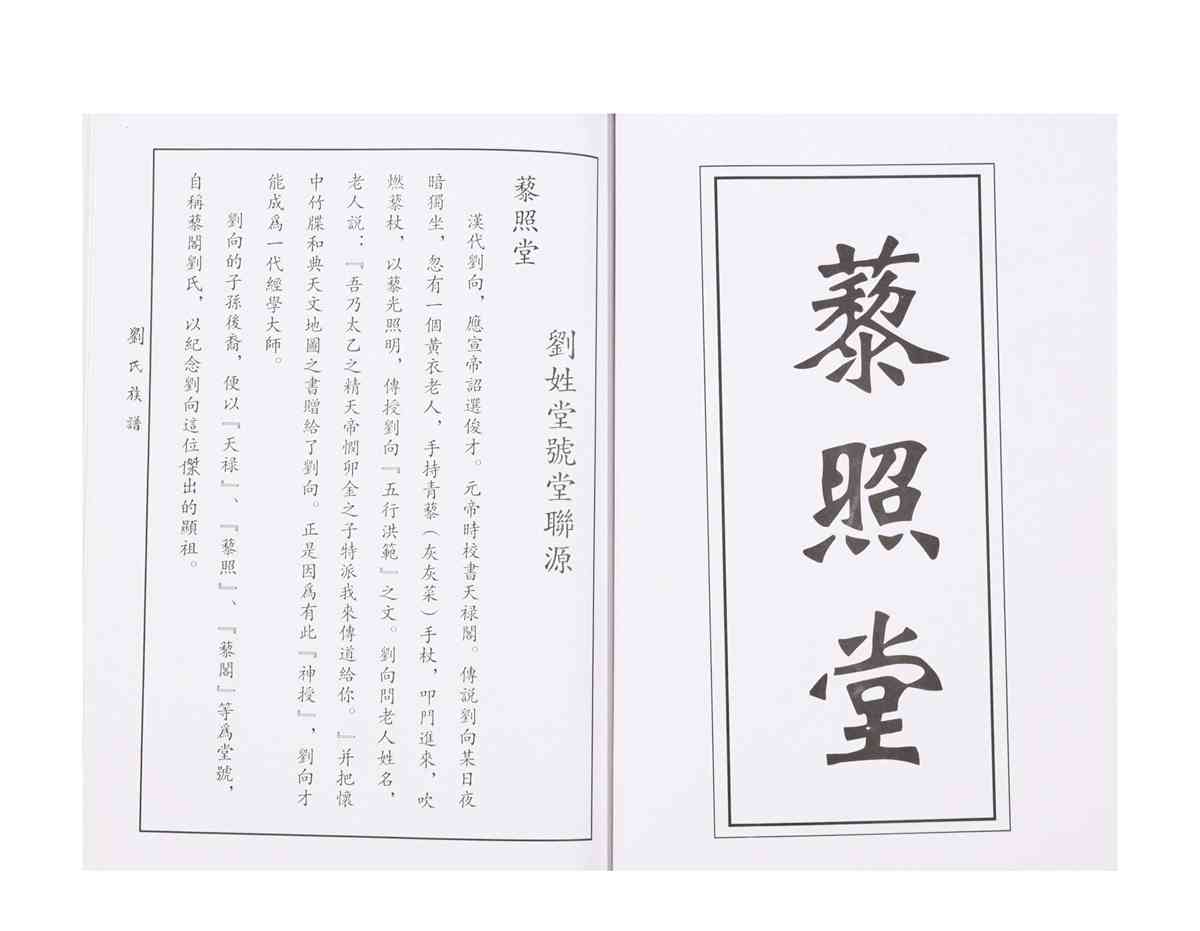 藜照堂
劉姓堂號堂聯源
藜照堂
漢代劉向，應宣帝詔選俊才。元帝時校書天禄閣。傳説劉向某日夜
暗獨坐，忽有一個黃衣老人，手持青藜（灰灰菜）手杖，叩門進來，吹
燃藜杖，以藜光照明，傳授劉向『五行洪範』之文。劉向問老人姓名，
老人説：『吾乃太乙之精天帝憫卯金之子特派我來傳道給你。』并把懷
中竹牒和典天文地圖之書贈給了劉向。正是因爲有此『神授』，劉向才
能成爲一代經學大師。
劉向的子孫後裔，便以『天禄』、『藜照』、『藜閣』等爲堂號，
自稱藜閣劉氏，以紀念劉向這位傑出的顯祖。
劉氏族譜